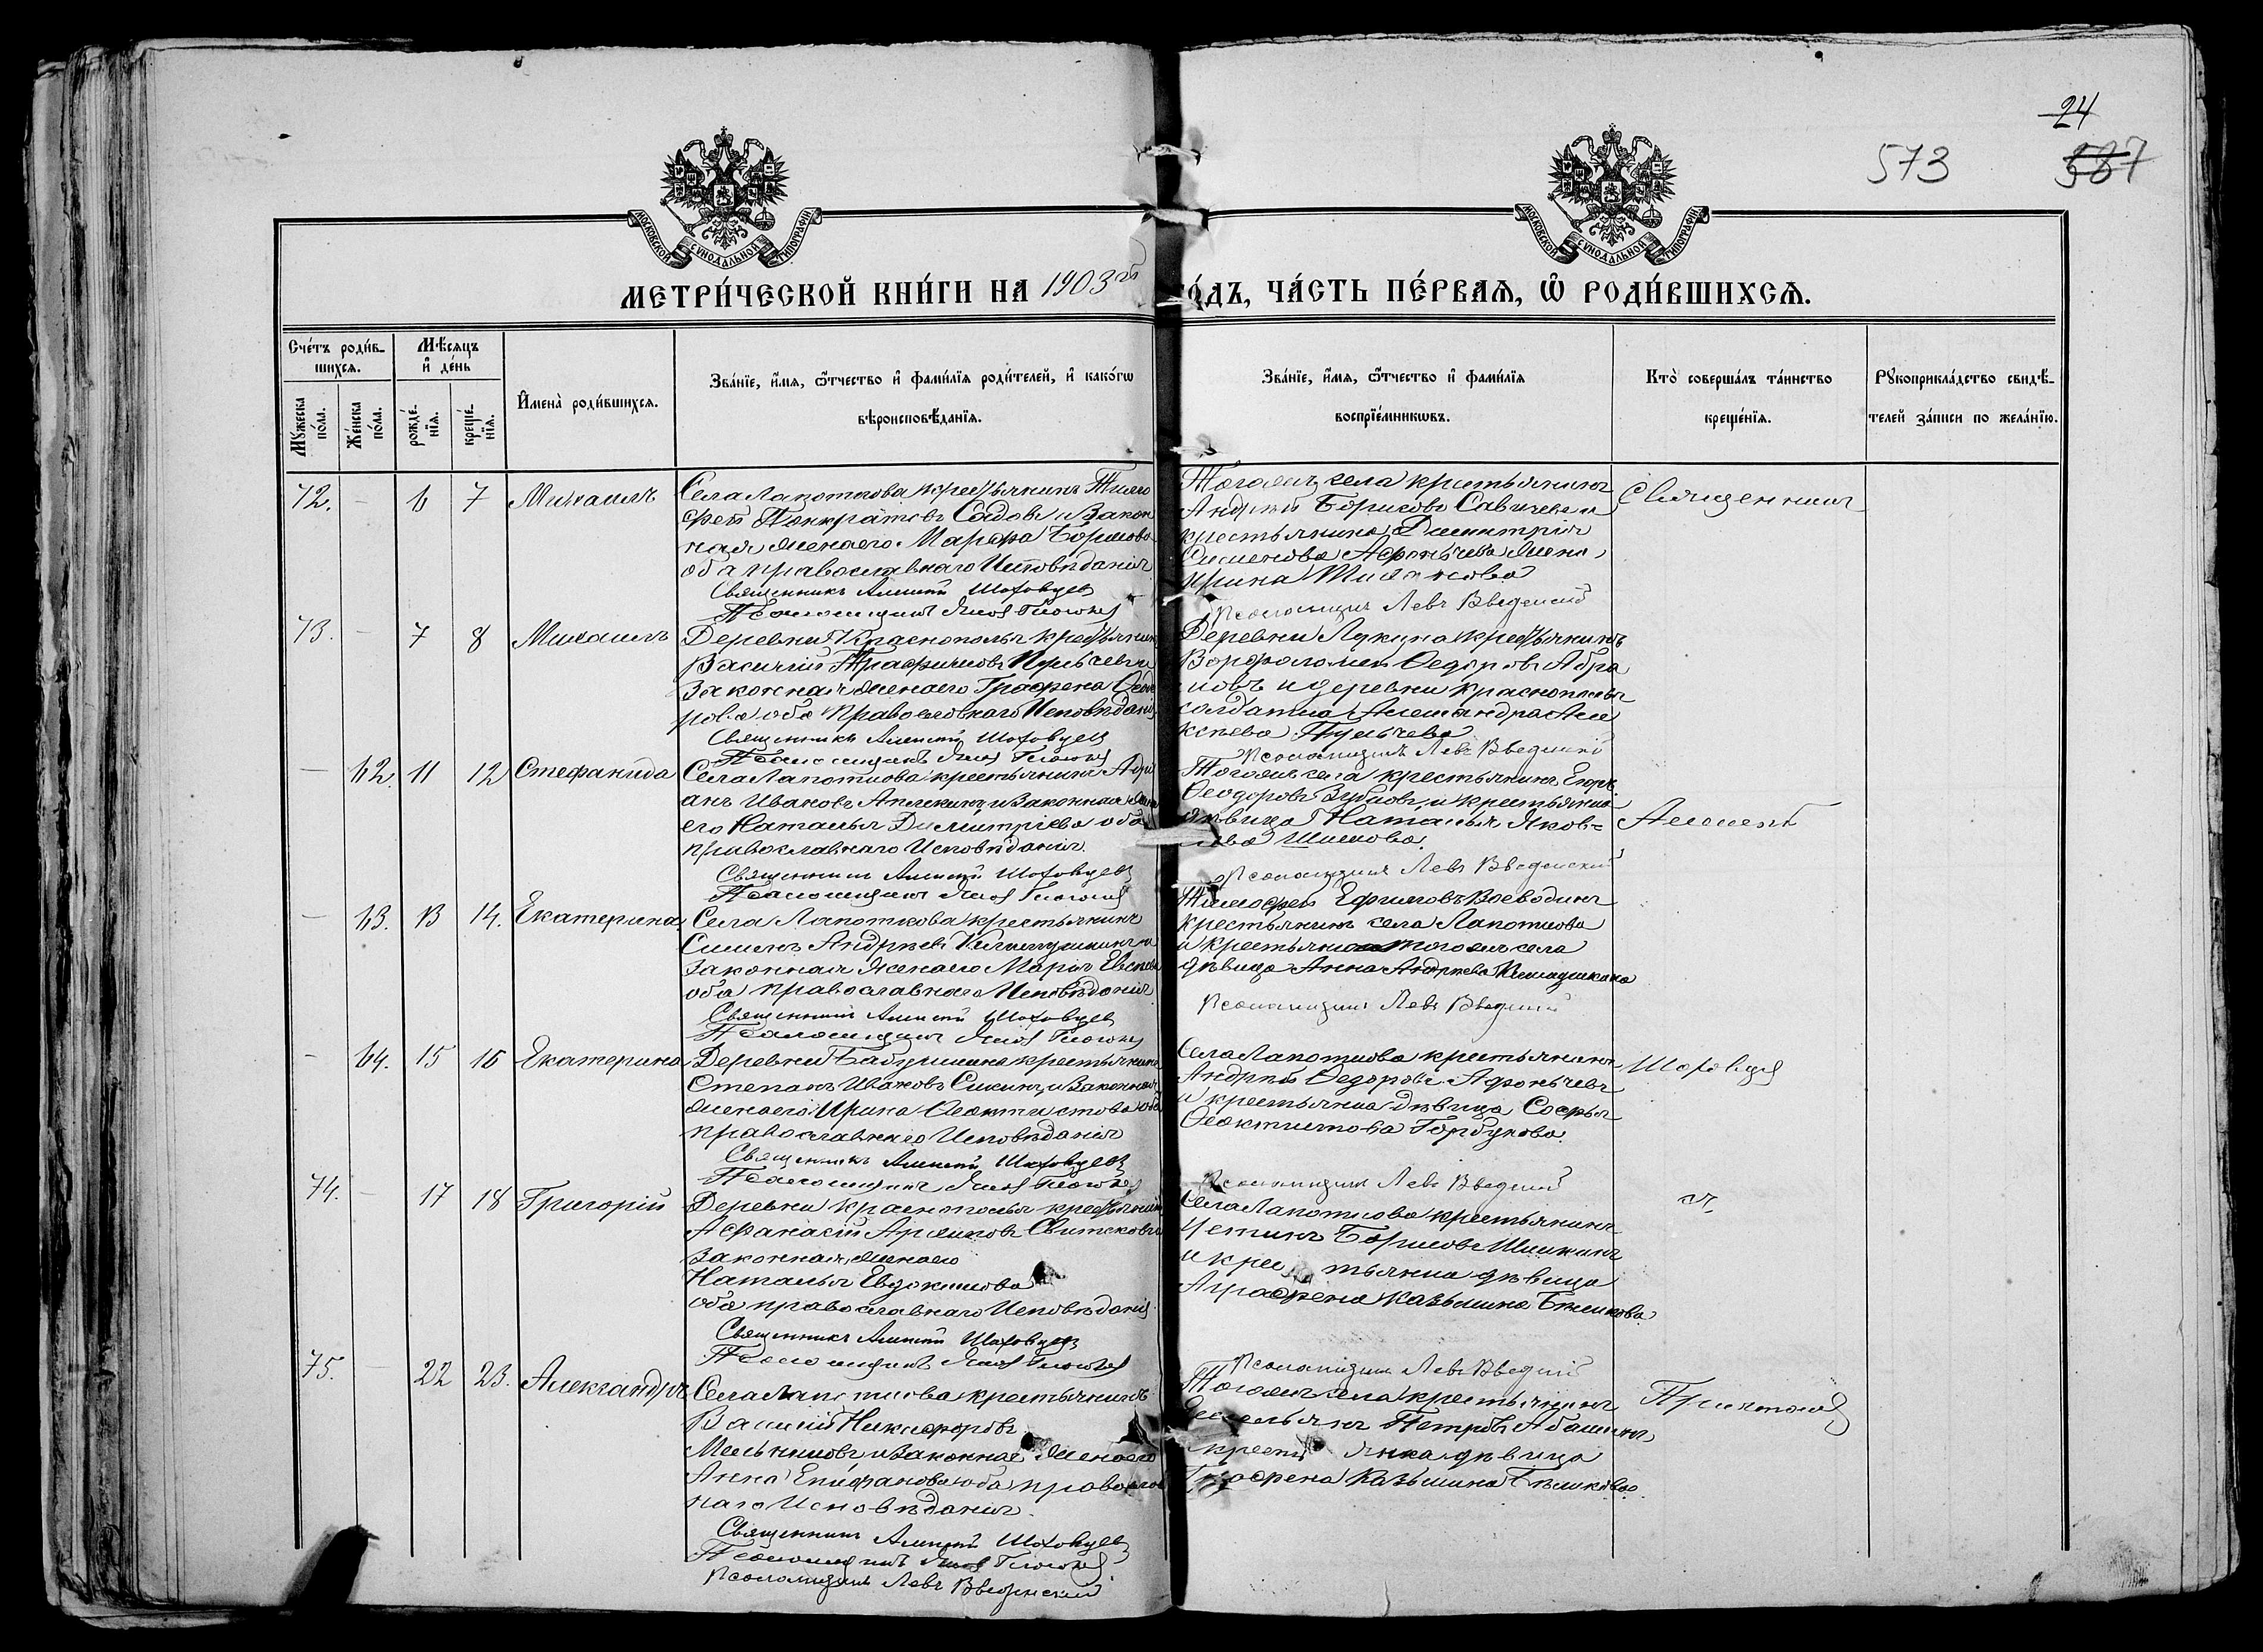 24
573 587
МОСКОВСКОЙ СѴНОДАЛЬНОЙ ТИПОГРАФІИ
МОСКОВСКОЙ СѴНОДАЛЬНОЙ ТИПОГРАФІИ
МЕТРИ́ЧЕСКОЙ КНИ́ГИ НА 1903й ГО́ДЪ, ЧА́СТЬ ПЕ́РВАЯ, Ѽ РОДИ́ВШИХСЯ.
Сче́тъ роди́в-
шихся.
Мѣ́сяцъ
и҆ де́нь
Мꙋ́жеска по́ла.
Же́нска по́ла.
рожде́-нїя.
креще́-нїя.
И҆мена̀ роди́вшихся.
Зва́нїе, и҆́мя, ѻ҆́тчество и҆ фами́лїя роди́телей, и҆ како́гѡ
вѣроисповѣ́данїя.
Зва́нїе, и҆́мя, ѻ҆́тчество и҆ фами́лїя
воспрїе́мникѡвъ.
Кто̀ соверша́лъ та́инство
креще́нїя.
Рꙋкоприкла́дство свидѣ́-
телей за́писи по жела́нїю.
72. – 6 7 Михаилъ
Села Лапоткова крестьянинъ Тимо
фей Панкратовъ Садовъ и Закон
ная жена его Марфа Борисова
оба православнаго Исповѣданія
Священникъ Алексѣй Шаховцев
Псаломщикъ
Тогожъ села крестьянинъ
Андрей Борисовъ Савичевъ и
крестьянина Димитрія
Симеонова Афонычева жена
Ирина
Псаломщикъ Левъ Введенскій
Священникъ
73. – 7 8 Михаилъ
Деревни Краснополья крестьянин
Василий
Законная жена его Аграфена Фео
рова оба Православнаго Исповѣданія
Священникъ Алексѣй Шаховцев
Псаломщикъ
Деревни Лукина крестьянинъ
Ворфоломей Федоровъ Абра
мовъ и деревни краснополья
солдатка Александра Але
ксѣева
Псаломщикъ Левъ Введенскій
– 62. 11 12 Стефанида
Села Лапоткова крестьянинъ Адрі
анъ Ивановъ и Законная жена
его Наталья Димитріева оба
православнаго Исповѣданія
Священникъ Алексѣй Шаховцев
Псаломщикъ
Тогожъ села крестьянинъ Егоръ
Феодоровъ Зубковъ и крестьянка
дѣвица Наталья Яков=
лева Шишкова.
Псаломщикъ Левъ Введенскій
Алексѣй
– 63. 13 14. Екатерина
Села Лапоткова крестьянинъ
Симеонъ Андрѣевъ и
Законная жена его Марія
оба православнаго Исповѣданія
Священникъ Алексѣй Шаховцев
Псаломщикъ
Тимофей Ефимовъ Воеводинъ
крестьянинъ села Лапоткова
и крестьянка того же села
дѣвица Анна Андрѣева
Псаломщикъ Левъ Введенскій
– 64. 15 16 Екатерина
Деревни Бабушкина крестьянинъ
Степанъ Ивановъ Сикинъ и Законная
жена его Ирина Феоктистова оба
православнаго Исповѣданія
Священникъ Алексѣй Шаховцев
Псаломщикъ
Села Лапоткова крестьянинъ
Андрей Федоровъ Афонычевъ
и крестьянка дѣвица Софья
Феоктистова Горбунова.
Псаломщикъ Левъ Введенскій
Шаховцев
74. – 17 18 Григорій
Деревни Краснополья крестьянинъ
Афанасій
Законная жена его
Наталья Евдокимова
оба православнаго Исповѣданія.
Священникъ Алексѣй Шаховцев
Псаломщикъ
Села Лапоткова крестьянинъ
Устинъ Борисовъ Шишкинъ
и крестьянка дѣвица
Аграфена Казьмина
Псаломщикъ Левъ Введенскій
съ
75. – 22 23. Александръ
Села Лапоткова крестьянинъ
Василій Никифоровъ
и Законная жена его
Анна Епифанова оба православ
наго Исповѣданія.
Священникъ Алексѣй Шаховцев
Псаломщикъ
Псаломщикъ Левъ Введенскій
Тогожъ села крестьянинъ
Петровъ
крестьянка дѣвица
Аграфена Казьмина
Причтомъ